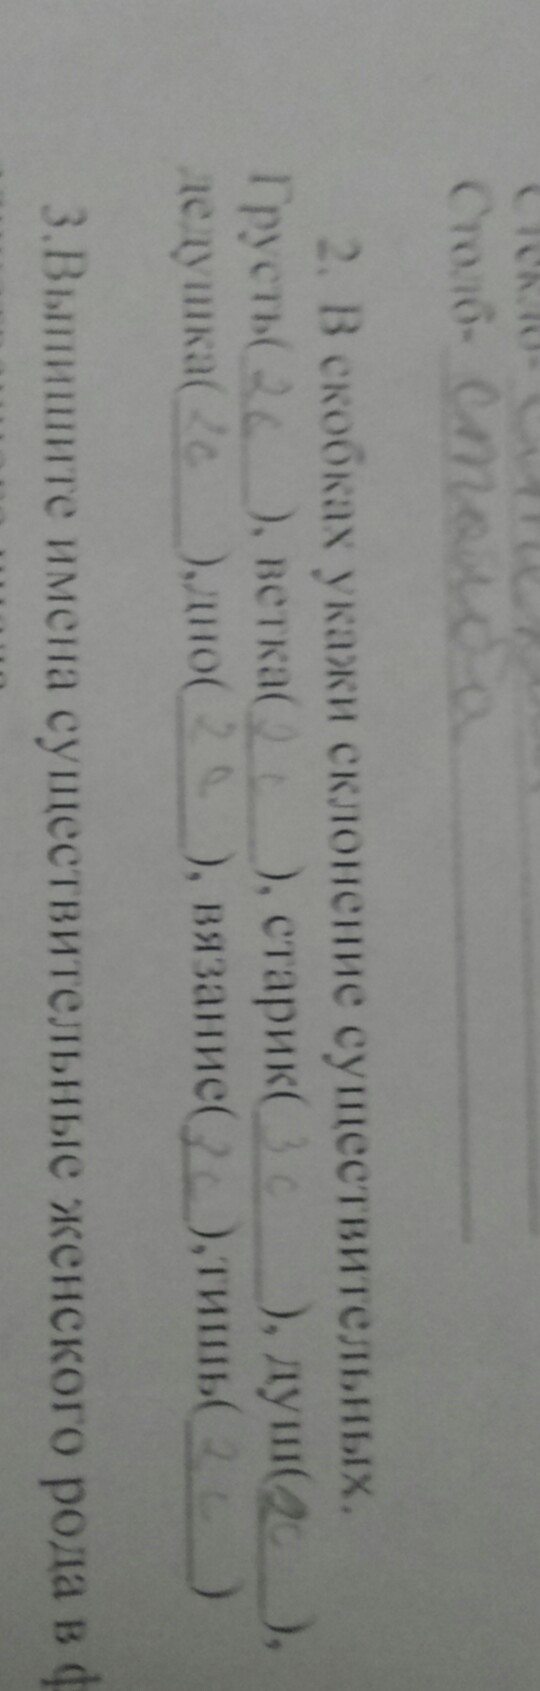 Столб- столба
2. В скобках укажи склонение существительных.
Грусть( 2 с ), ветка( 2 с ), старик( 3 с ), душ( 2с ),
дедушка( 2с ),дно( 2 с ), вязание( 2 с ),тишь( 2 с )
3.Выпишите имена существительные женского рода в ф